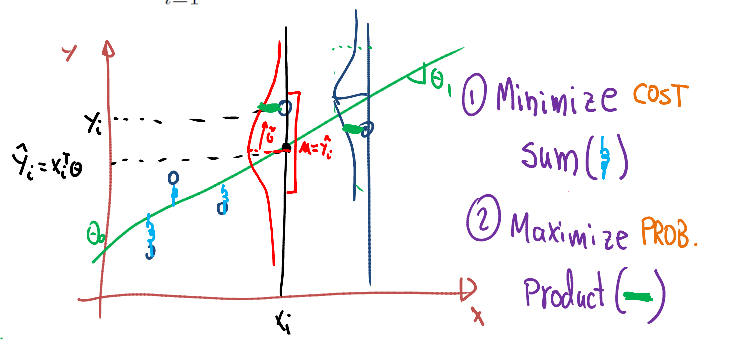 i=1
Y
yᵢ
ŷᵢ = xᵢᵀθ
θ₀
σ
μ=ŷᵢ
θ₁
xᵢ
X
① Minimize COST
sum( )
② Maximize PROB.
Product( )